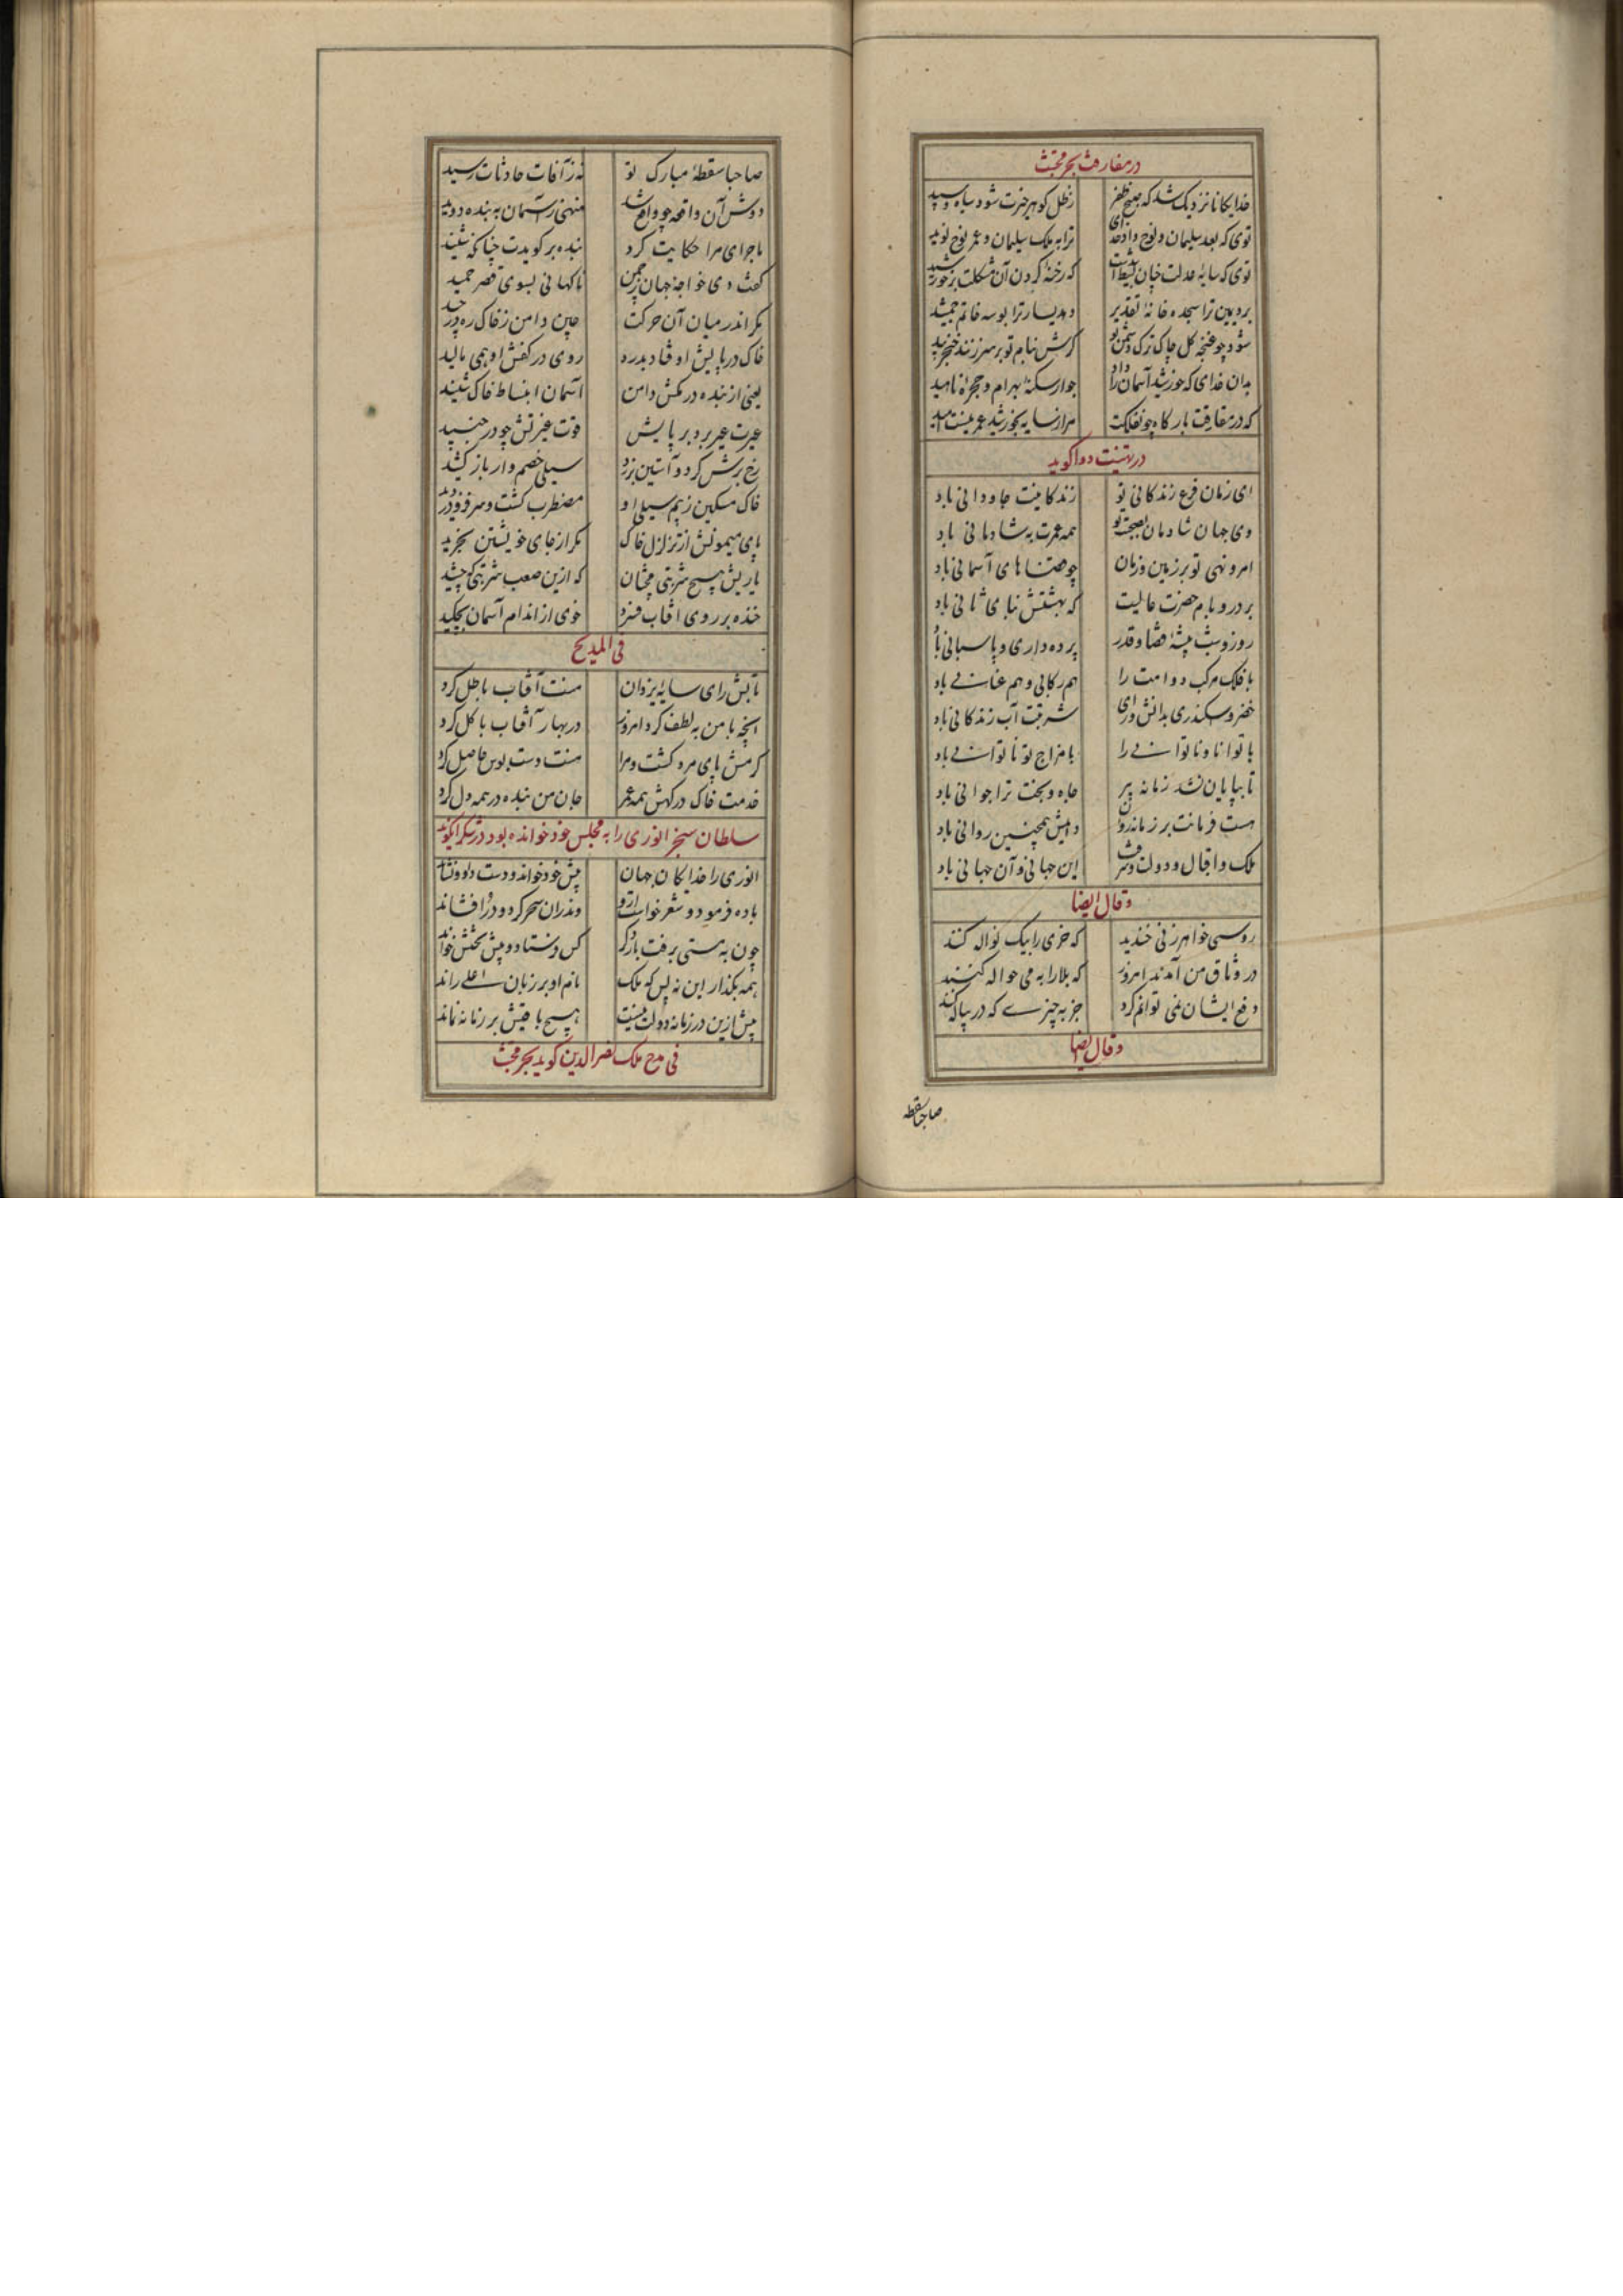 در مفارقت بحر مجتث
خدایکانا نزدیک شد که صبح ظفر ز ظل کوهر خرت شود سیاه و سپید
توی که بعد سلیمان و نوح داد خدای ترا به ملک سلیمان و عمر نوح نوید
توی که سایهٔ عدلت چنان بسیط شدست که رخنه کردن آن مشکلت بر خورشید
برد یمین ترا سجده خانهٔ تقدیر دهد یسار ترا بوسه خاتم جمشید
شود چو غنچه کل چاک ترک دشمن تو کرش بنام تو بر سر زنند خنجر بید
بدان خدای که خورشید آسمان را داد جوار سکنهٔ بهرام و حجرهٔ ناهید
که در مفارقت بارکاه چون فلکت مرا ز سایه بخورشید عمر نیست امید
در تهنیت دوا کوید
ای زمان فرع زندکانی تو زندکانیت جاودانی باد
وی جهان شادمان بصحبت تو همه عمرت به شادمانی باد
امر و نهی تو بر زمین و زمان چو قضاهای آسمانی باد
بر در و بام حضرت عالیت که بهشتش بنای ثانی باد
روز و شب پیشهٔ قضا و قدر پرده داری و پاسبانی باد
با فلک مرکب دوامت را هم رکابی و هم عنانی باد
خضر و سکندری بدانش و رای شربتت آب زندکانی باد
با توانا و ناتوانی را با مزاج تو ناتوانی باد
تا بپایان نشد زمانه پیر جاه و بخت ترا جوانی باد
هست فرمانت بر زمانه روان دایمش همچنین روانی باد
ملک و اقبال و دولت و شرفت این جهانی و آن جهانی باد
و قال ایضا
روسبی خواهر زنی خندید که خری را بیک نواله کنند
در وثاق من آمدند امروز که بلا را به می حواله کنند
دفع ایشان نمی توانم کرد جز به چیزی که در پیاله کنند
و قال ایضا
صاحبا سقطه
صاحبا سقطهٔ مبارک تو نه ز آفات حادثات رسید
دوش آن واقعه چو واقع شد منهی ز آسمان به بنده دوید
ماجرای مرا حکایت کرد بنده بر کویدت چنانکه شنید
کفت دی خواجهٔ جهان ز چمن ناکهانی بسوی قصر چمید
مکر اندر میان آن حرکت چین دامن ز خاک ره در چید
خاک در پایش اوفتاد بدرد روی در کفش او همی مالید
یعنی از بنده در مکش دامن آسمان انبساط خاک شنید
غیرت غیر برد بر پایش قوت غیرتش چو در جنبید
رخ ترش کرد و آستین بر زد سیلی خصم وار باز کشید
خاک مسکین ز بیم سیلی او مضطرب کشت و سر فرو دزدید
پای میمونش از تزلزل خاک مکر از جای خویشتن بخزید
یاریش هیچ شربتی مچشان که ازین صعب شربتی که چشید
خنده بر روی آفتاب فسرد خوی از اندام آسمان بچکید
فی المدیح
تابش رای سایهٔ یزدان منت آفتاب باطل کرد
آنچه با من به لطف کرد امروز در بهار آفتاب با کل کرد
کرمش پای مرد کشت و مرا منت دست بوس حاصل کرد
خدمت خاک درکهش همه عمر جان من بنده در همه دل کرد
سلطان سنجر انوری را به مجلس خود خوانده بود در شکر آن کوید
انوری را خدایکان جهان پیش خود خواند و دست داد و نشاند
باده فرمود و شعر خواست ازو وندران سحر کرد و در افشاند
چون به مستی برفت بار دکر کس فرستاد و پیش تختش خواند
همه بکذار این نه بس که ملک نام او بر زبان اعلی راند
بیش ازین در زمانه دولت نیست هیچ باقیش بر زمانه نماند
فی مدح ملک نصر الدین کوید بحر مجتث